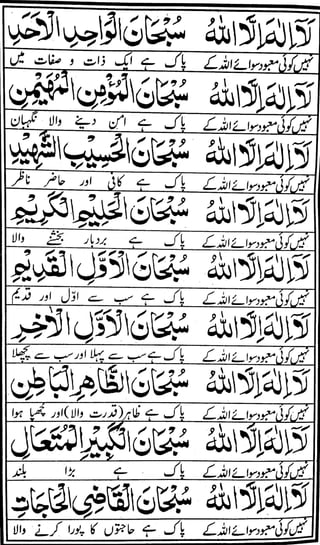 لَآ اِلٰهَ اِلَّا اللهُ سُبْحَانَ الْوَاحِدِ الْاَحَدِ
نہیں کوئی معبود سوائے اللہ کے پاک ہے ایک ذات و صفات میں
لَآ اِلٰهَ اِلَّا اللهُ سُبْحَانَ الْمُؤْمِنِ الْمُهَيْمِنِ
نہیں کوئی معبود سوائے اللہ کے پاک ہے امن دینے والا نگہبان
لَآ اِلٰهَ اِلَّا اللهُ سُبْحَانَ الْحَسِيْبِ الشَّهِيْدِ
نہیں کوئی معبود سوائے اللہ کے پاک ہے کافی اور حاضر ناظر
لَآ اِلٰهَ اِلَّا اللهُ سُبْحَانَ الْحَلِيْمِ الْكَرِيْمِ
نہیں کوئی معبود سوائے اللہ کے پاک ہے بردبار بخشنے والا
لَآ اِلٰهَ اِلَّا اللهُ سُبْحَانَ الْاَوَّلِ الْقَدِيْمِ
نہیں کوئی معبود سوائے اللہ کے پاک ہے سب سے اوّل اور قدیم
لَآ اِلٰهَ اِلَّا اللهُ سُبْحَانَ الْاَوَّلِ الْاٰخِرِ
نہیں کوئی معبود سوائے اللہ کے پاک ہے سب سے پہلا اور سب سے پچھلا
لَآ اِلٰهَ اِلَّا اللهُ سُبْحَانَ الظَّاهِرِ الْبَاطِنِ
نہیں کوئی معبود سوائے اللہ کے پاک ہے ظاہر (قدرت والا) اور چھپا ہوا
لَآ اِلٰهَ اِلَّا اللهُ سُبْحَانَ الْكَبِيْرِ الْمُتَعَالِ
نہیں کوئی معبود سوائے اللہ کے پاک ہے بڑا بلند
لَآ اِلٰهَ اِلَّا اللهُ سُبْحَانَ الْقَاضِى الْحَاجَاتِ
نہیں کوئی معبود سوائے اللہ کے پاک ہے حاجتوں کا پورا کرنے والا